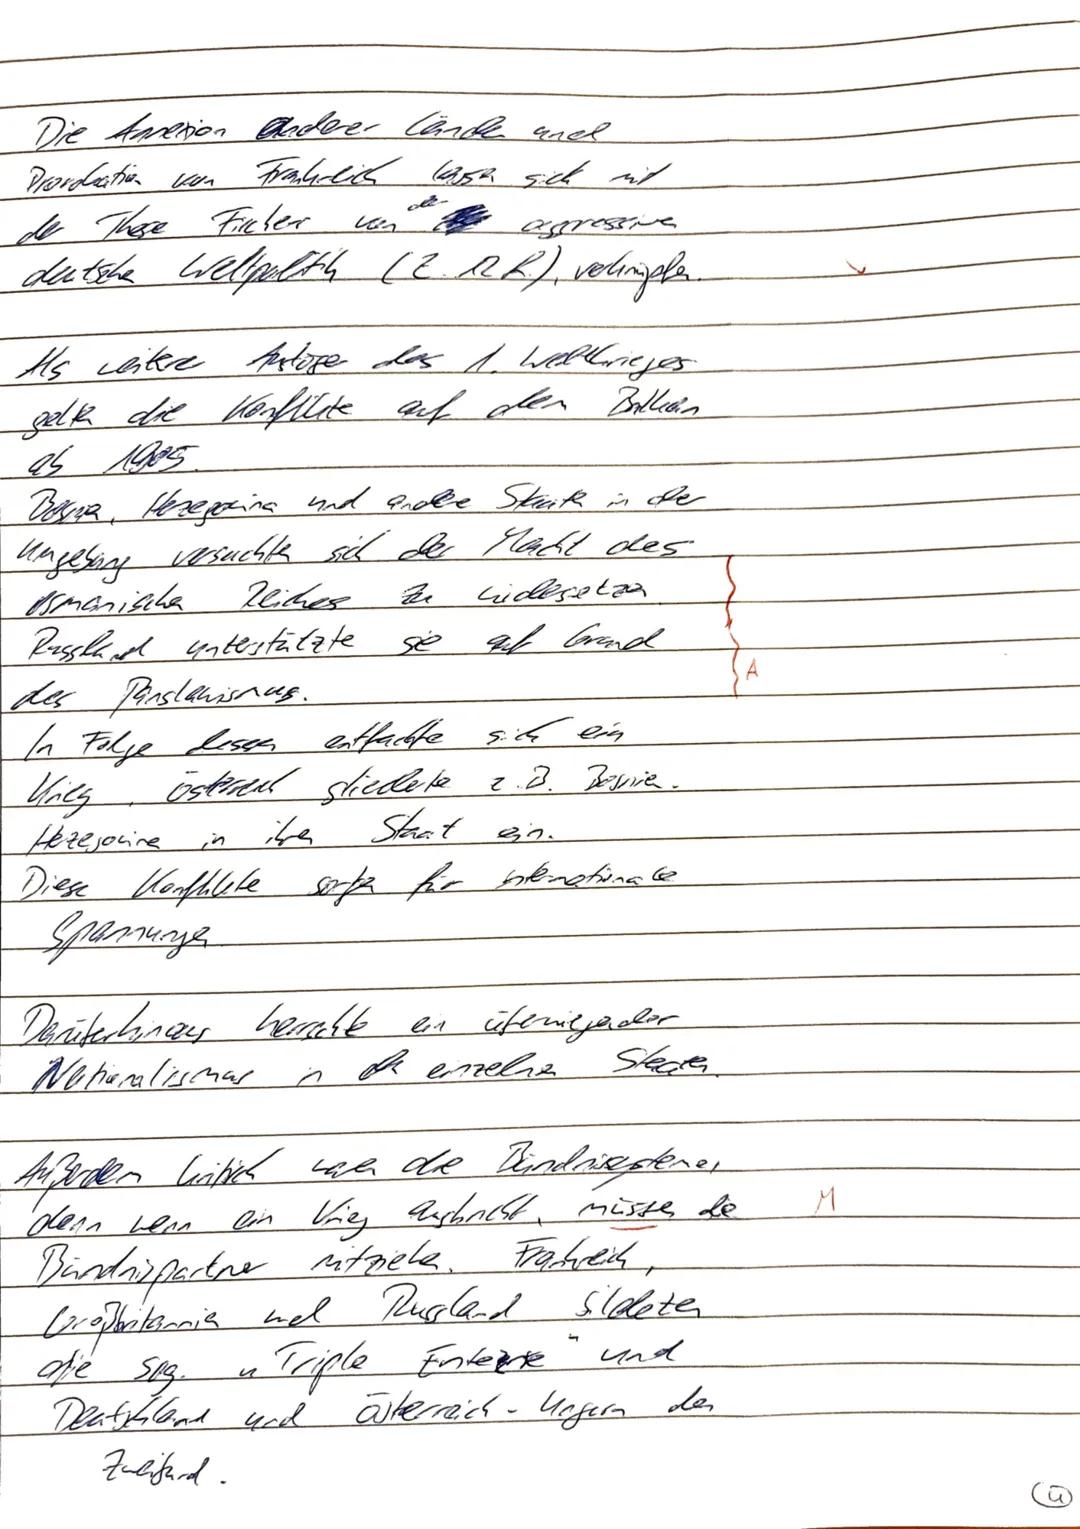 Die Annexion anderer Länder und
Provokation von Frankreich lassen sich mit
der These Fischer von der aggressiven
deutschen Weltpolitik (Z. 12 f.), verknüpfen.
Als weitere Auslöser des 1. Weltkrieges
gelten die Konflikte auf dem Balkan
ab 1905.
Bosnia, Herzegowina und andere Staaten in der
Umgebung versuchten sich der Macht des
osmanischen Reiches zu widersetzen
Russland unterstützte sie auf Grund
A
des Panslawismus.
In Folge dessen entfachte sich ein
Krieg, Österreich gliederte z.B. Bosnien-
Herzegowina in ihren Staat ein.
Diese Konflikte sorgten für internationale
Spannungen
Darüberhinaus herrschte ein überwiegender
Nationalismus in den einzelnen Staaten.
Außerdem kritisch waren die Bündnissysteme,
denn wenn ein Krieg ausbricht, müssen die M
Bündnispartner mitziehen. Frankreich,
Großbritannien und Russland bildeten
die sog. „Triple Entente" und
Deutschland und Österreich-Ungarn den
Zweibund.
4